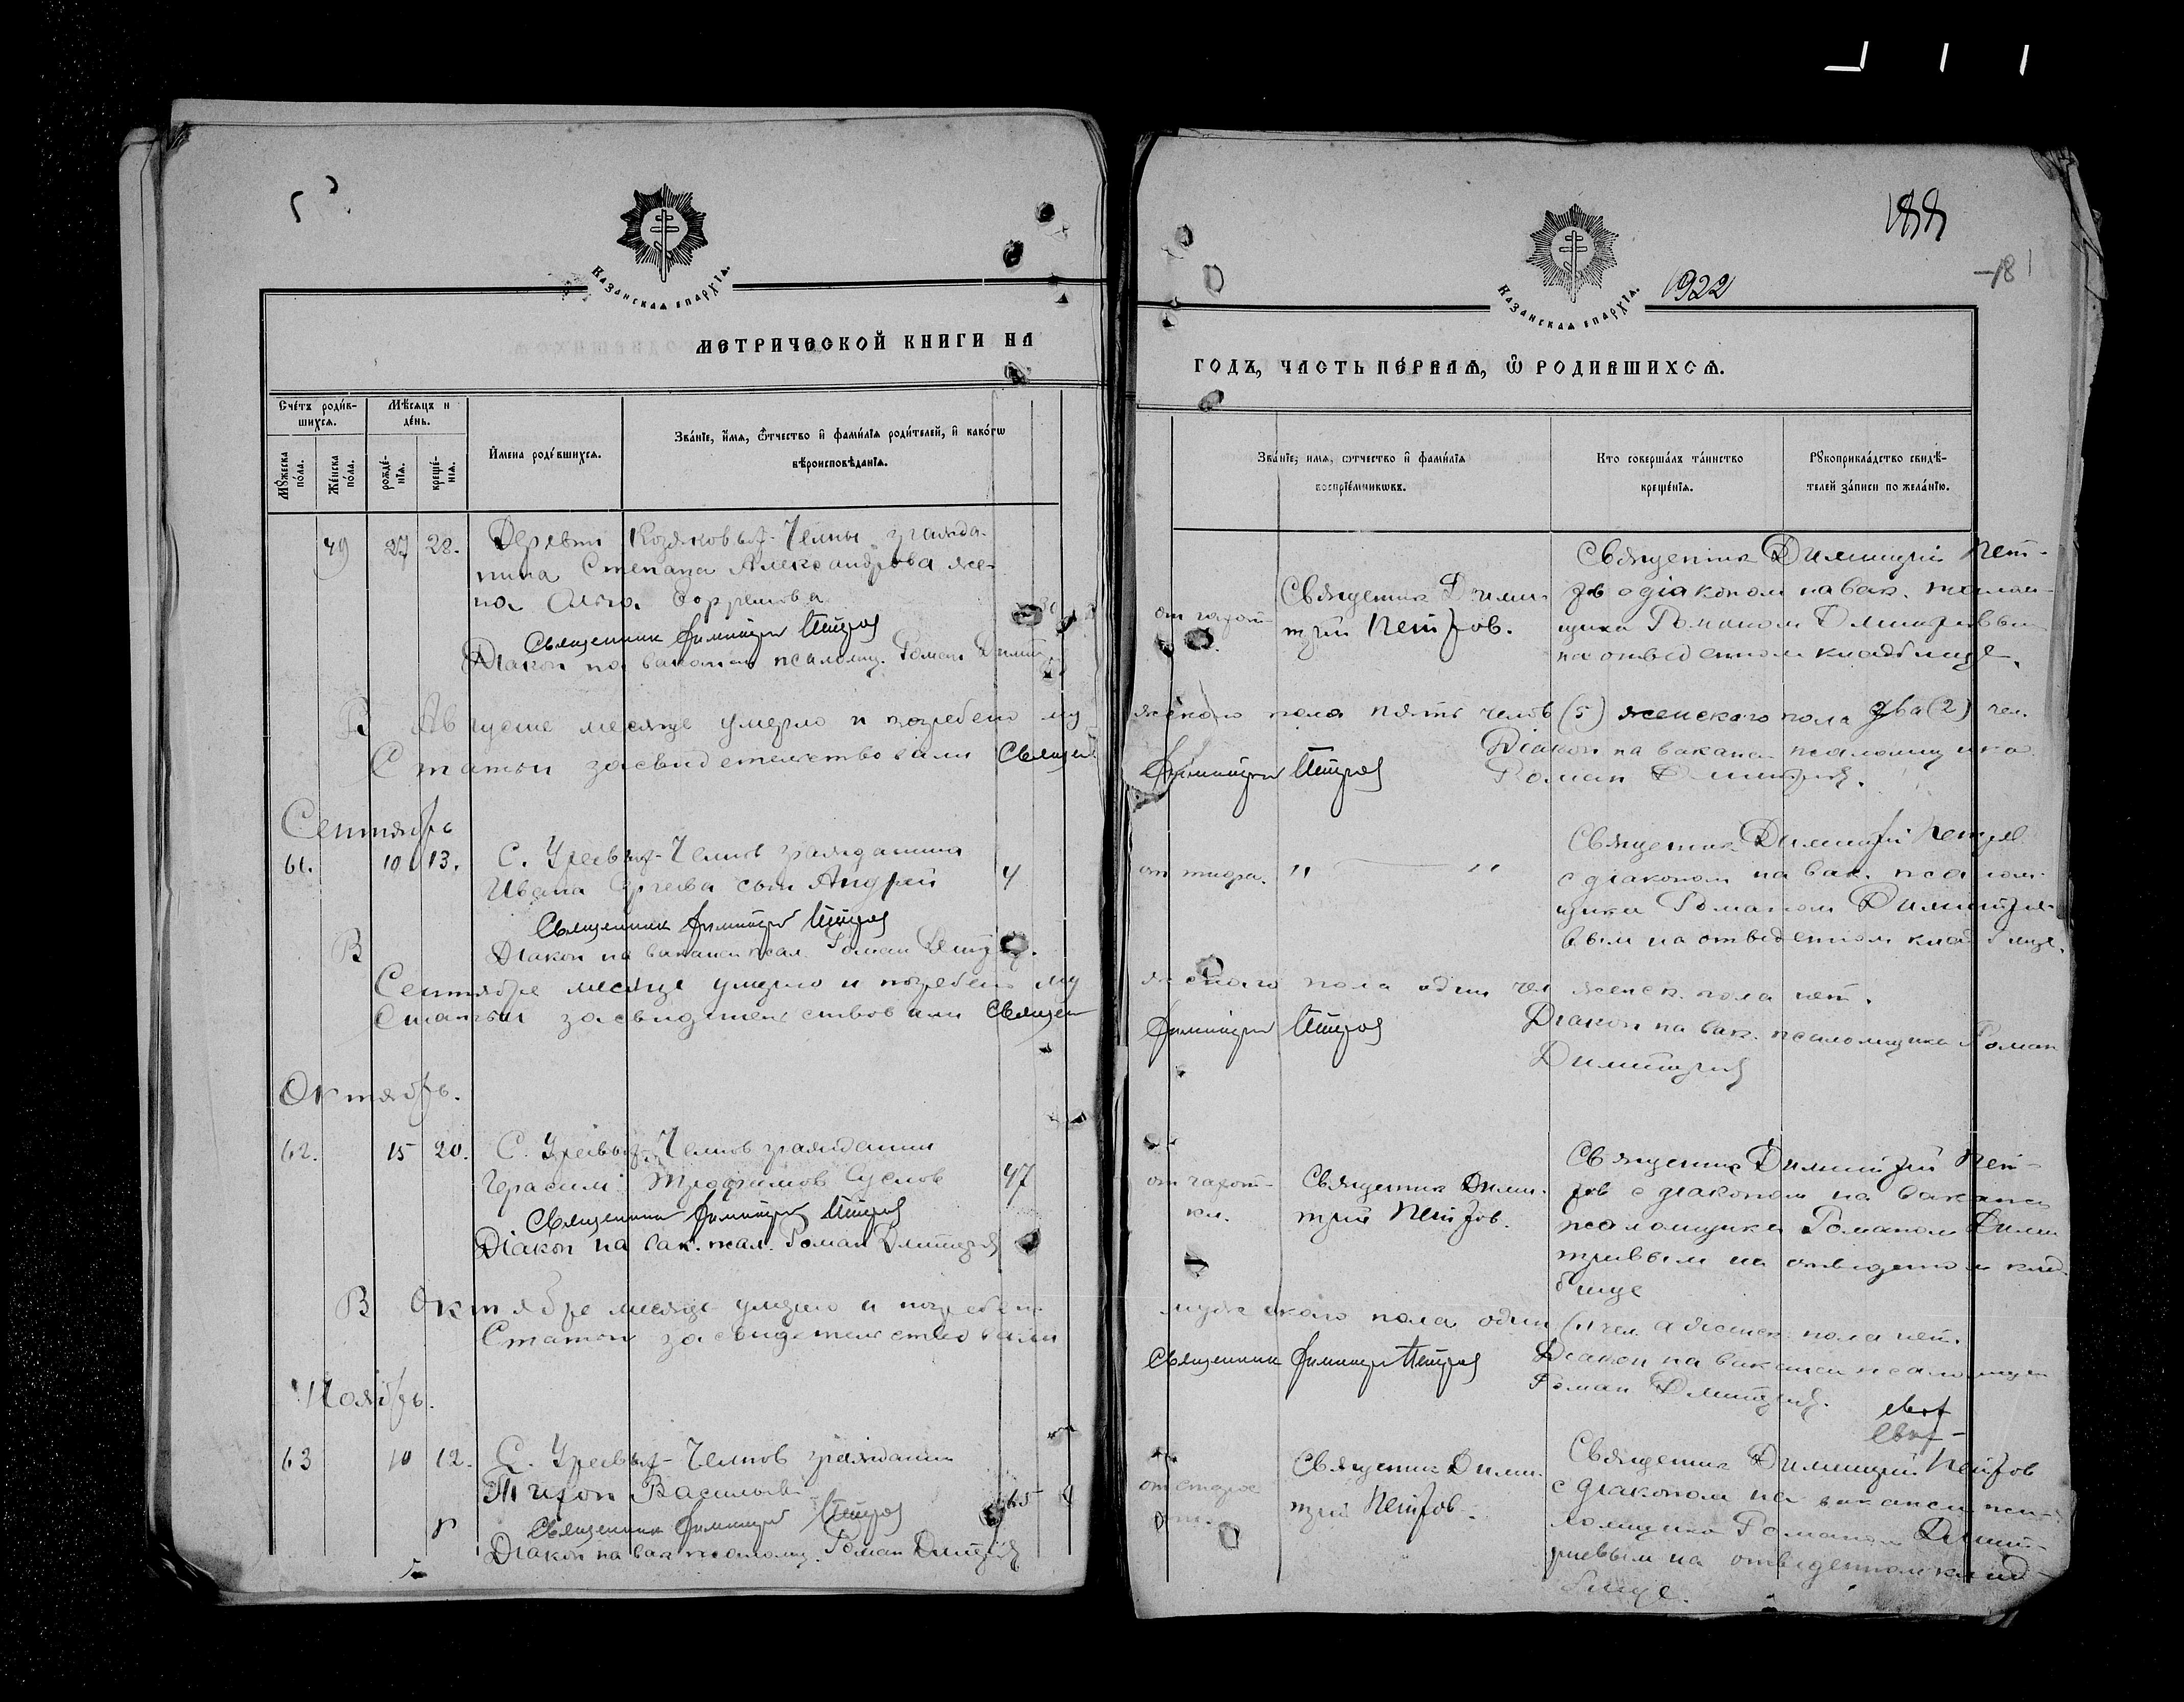 Казанская епархiя.
МЕТРИЧЕСКОЙ КНИГИ НА
Счéтъ роди́в-
шихся.
Мѣсяцъ и
дéнь.
Мꙋ́жеска
пóла.
Жéнска
пóла.
рождé-
нiя.
крещé-
нiя.
И́мена роди́вшихся.
Звáнiе, и́мя, ѻ́тчество и҆ фами́лiя роди́телей, и҆ какóгѡ
вѣроисповѣ́данiя.
49 27 28. Деревни Козяковых-Челны гражда-
нина Степана Александрова же-
на Ольга Ефремова
Священник Димитрий Петров
Дiакон на вакансии псаломщ. Роман Димит
В Августе месяце умерло и погребено му
Статьи засвидетельствовали Священ
Сентябрь
61. 10 13. С. Уреевых-Челнов гражданина
Ивана Сергеева сын Андрей 4
Священник Димитрий Петров
Дiакон на вакансии псал. Роман Димитр.
В
Сентябре месяце умерло и погребено му
Статьи засвидетельствовали Священ
Октябрь.
62. 15 20. С. Уреевых-Челнов гражданин
Герасим Трофимов Суслов 47
Священник Димитрий Петров
Дiакон на вак. псал. Роман Димитриев
В Октябре месяце умерло и погребено
Статьи засвидетельствовали
Ноябрь.
63 10 12. С. Уреевых-Челнов гражданин
Тихон Васильев 65
Священник Димитрий Петров
Дiакон на вак псаломщ. Роман Димитриев
188
18
Казанская епархiя.
1922
ГОДЪ, ЧАСТЬ ПЕ́РВАЯ, Ѽ РОДИВШИХСЯ.
Звáнiе, имя, ѻтчество и҆ фами́лiя
воспрiéмникωвъ.
Кто совершáлъ тáинство
крещéнiя.
Рꙋкоприклáдство свидѣ́-
телей зáписи по желáнiю.
Священник Димитрий Пет-
Священник Дими- ров с дiаконом на вак. псалом-
трий Петров. щика Романом Димитриевым
на отведенном кладбище.
жеского пола пять челов (5) женского пола два (2) чел.
Димитрий Петров
Дiакон на вакансии псаломщика
Роман Димитриев.
Священник Димитрий Петров
от тифа. " — " с дiаконом на вак. псалом-
щика Романом Димитрие-
вым на отведенном кладбище.
жеского пола один чел женск. пола нет.
Димитрий Петров
Дiакон на вак. псаломщика Роман
Димитриев
Священник Димитрий Пет-
Священник Дими- ров с дiаконом на вакансии
трий Петров. псаломщика Романом Дими
триевым на отведенном клад-
бище
мужеского пола один (1) чел а женск. пола нет.
Священник Димитрий Петров
Дiакон на вакансии псаломщик
Роман Димитриев.
Священник Дими- Священник Димитрий Петров
от старос с дiаконом на вакансии пса-
ти. трий Петров. ломщика Романом Димит-
риевым на отведенном клад-
бище.